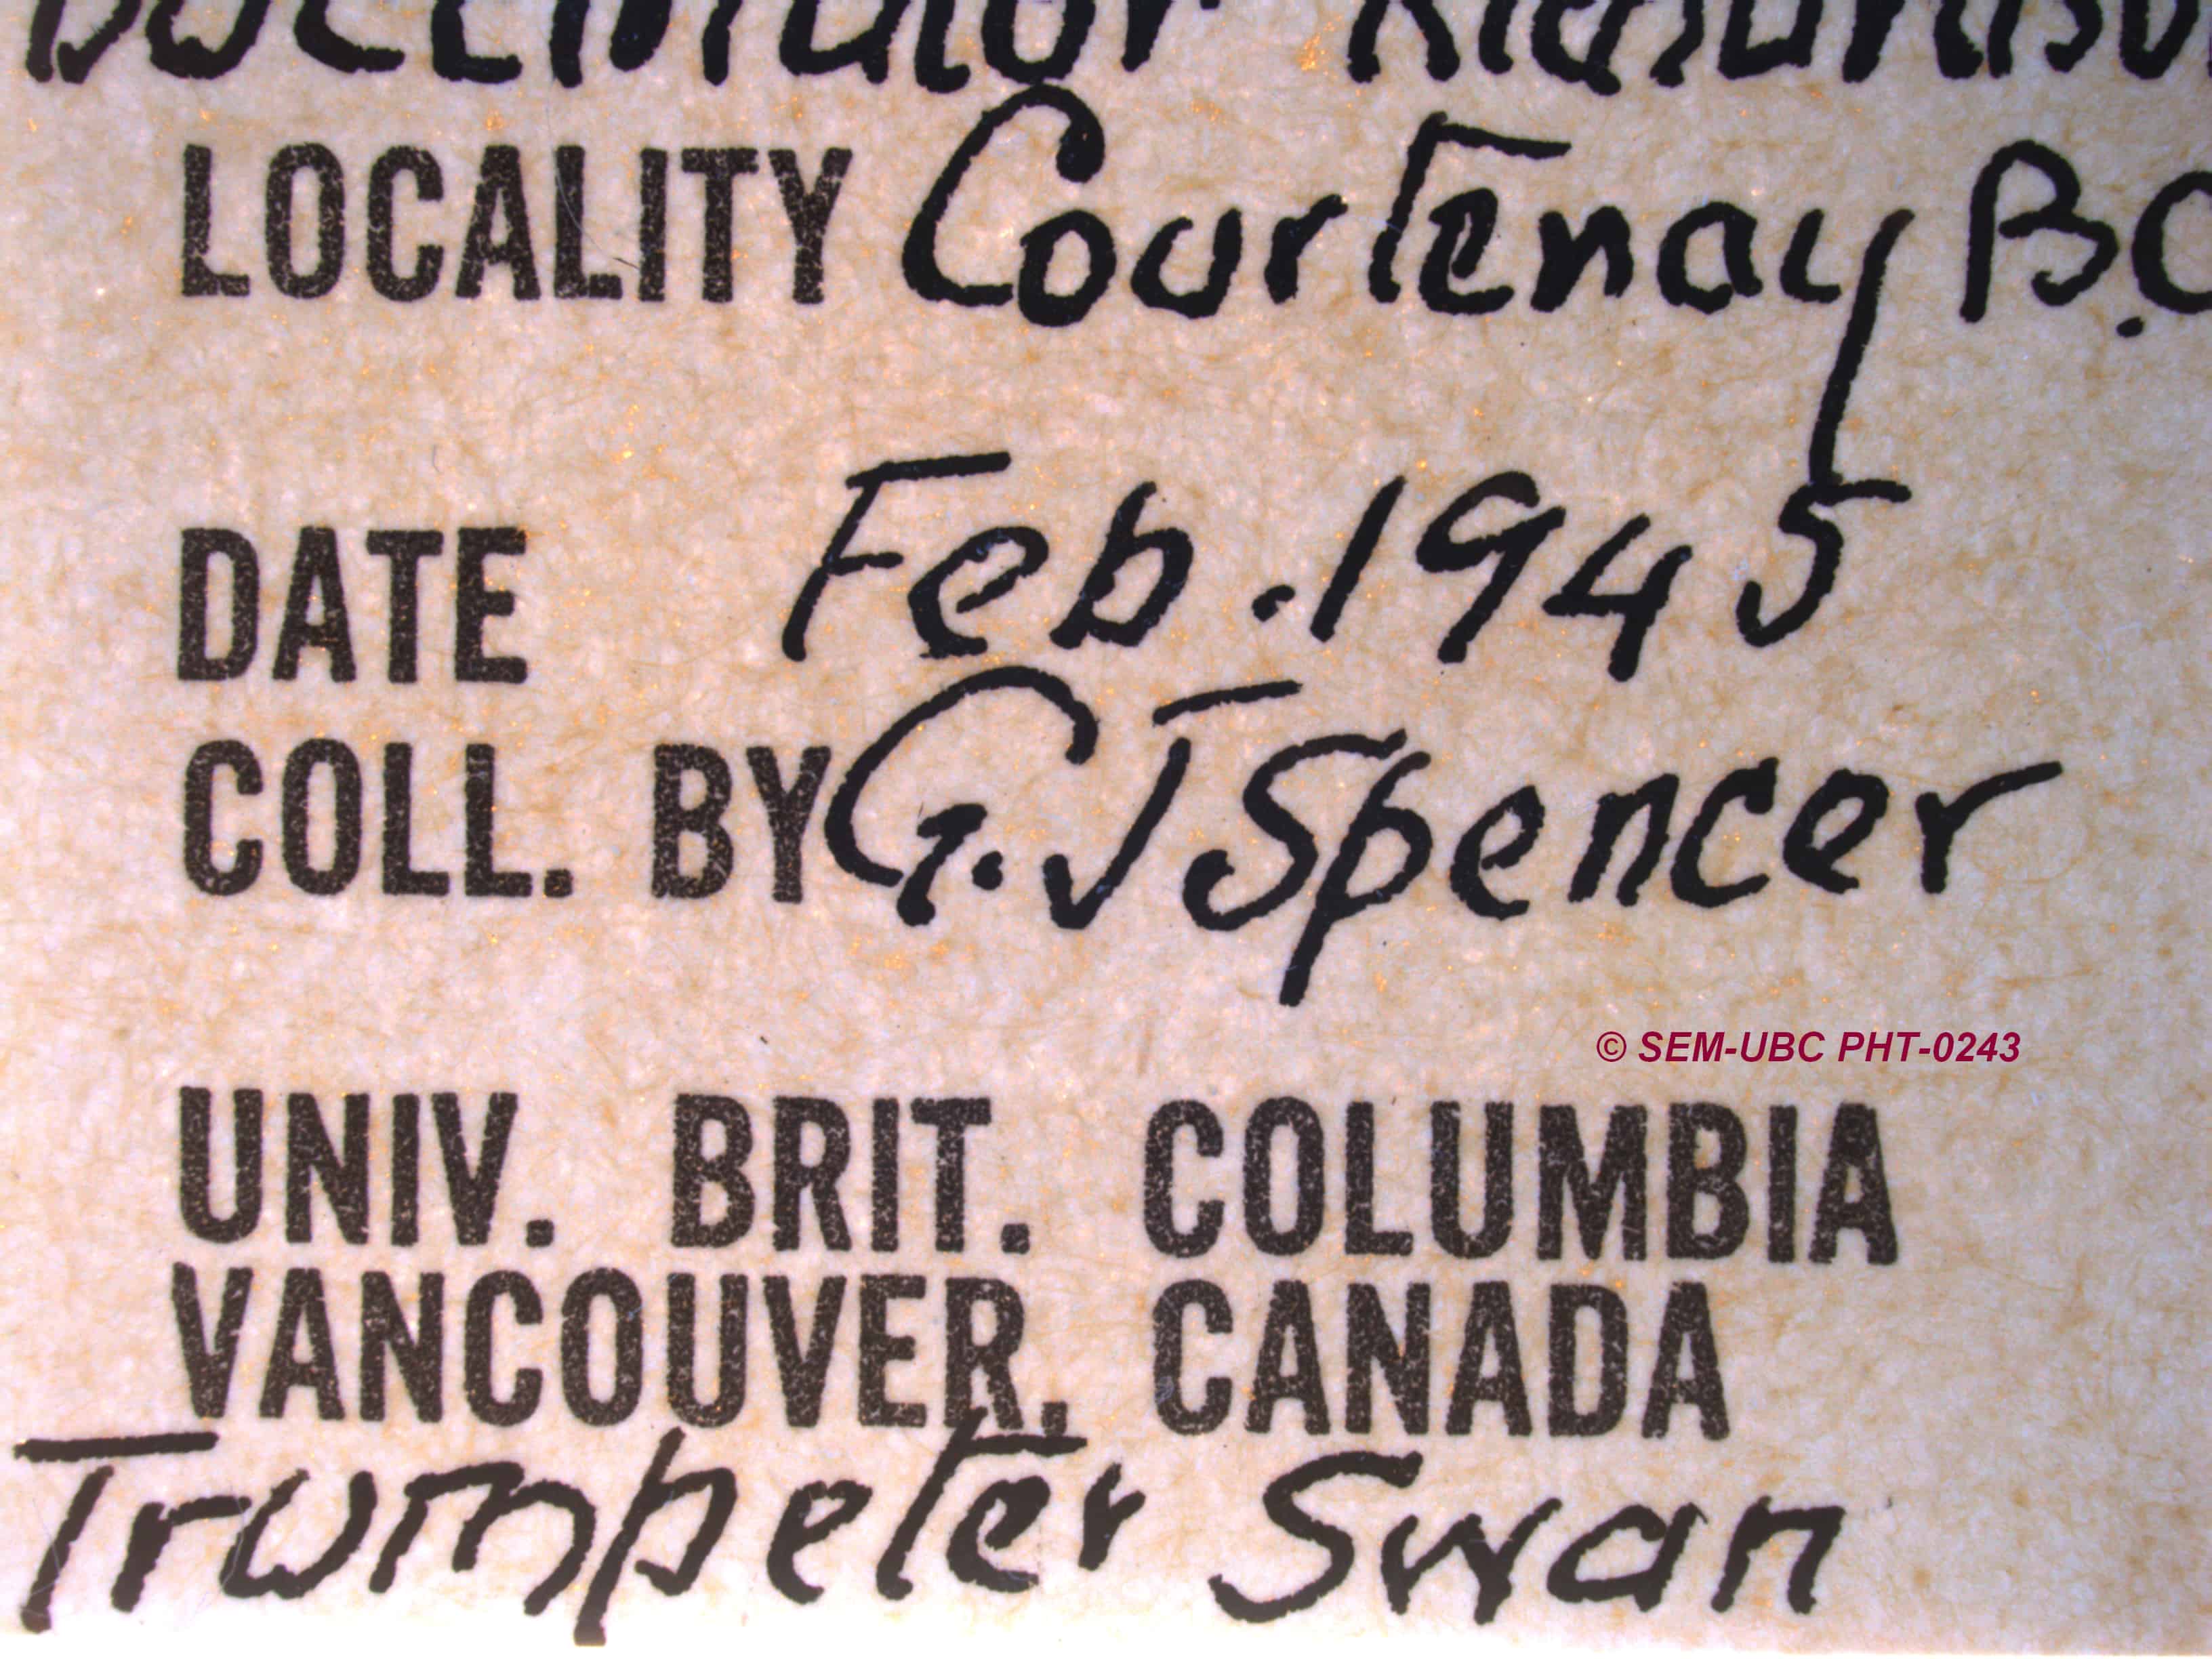 LOCALITY Courtenay B.C
DATE Feb. 1945
COLL. BY G. J Spencer
© SEM-UBC PHT-0243
UNIV. BRIT. COLUMBIA
VANCOUVER, CANADA
Trumpeter Swan